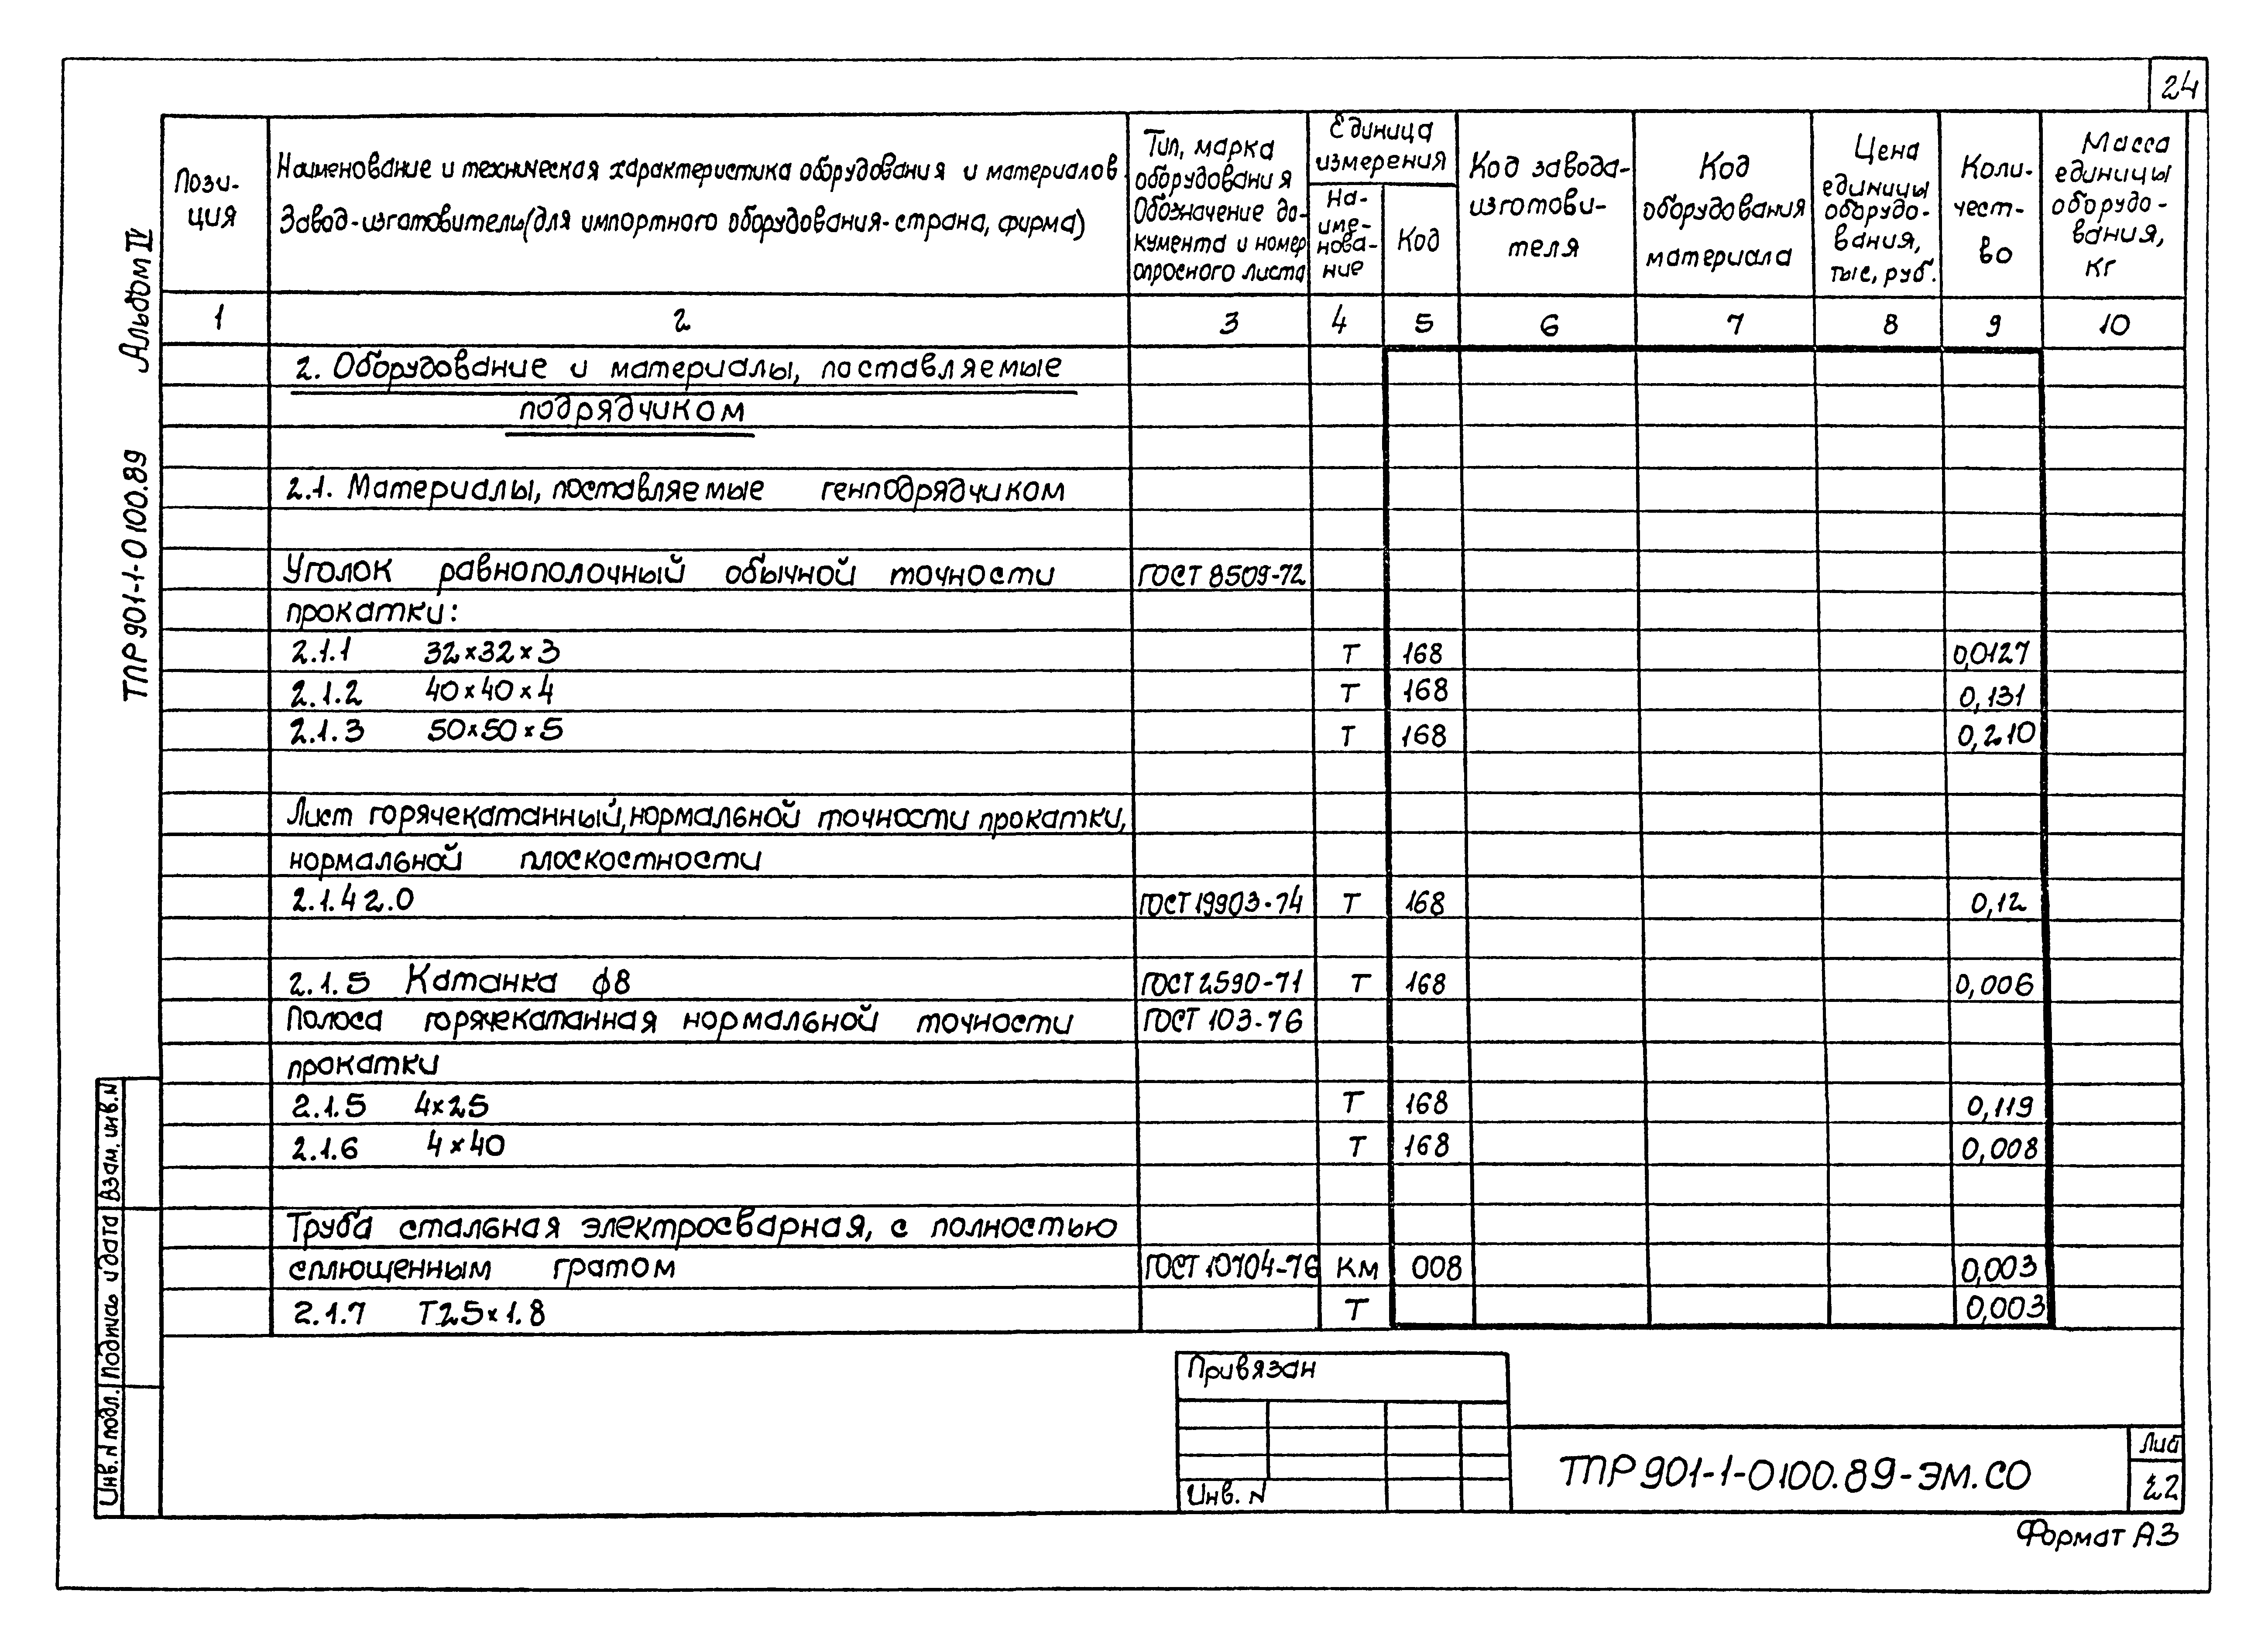 24
Пози-
ция
Наименование и техническая характеристика оборудования и материалов.
Завод-изготовитель (для импортного оборудования-страна, фирма)
Тип, марка
оборудования
Обозначение до-
кумента и номер
опросного листа
Единица
измерения
На-
име-
нова-
ние
Код
Код завода-
изготови-
теля
Код
оборудования
материала
Цена
единицы
оборудо-
вания,
тыс, руб.
Коли-
чест-
во
Масса
единицы
оборудо-
вания,
кг
1 2 3 4 5 6 7 8 9 10
2. Оборудование и материалы, поставляемые
подрядчиком
2.1. Материалы, поставляемые генподрядчиком
Уголок равнополочный обычной точности ГОСТ 8509-72
прокатки:
2.1.1 32×32×3 Т 168 0,0127
2.1.2 40×40×4 Т 168 0,131
2.1.3 50×50×5 Т 168 0,210
Лист горячекатанный, нормальной точности прокатки,
нормальной плоскостности
2.1.4 2.0 ГОСТ 19903-74 Т 168 0,12
2.1.5 Катанка ф8 ГОСТ 2590-71 Т 168 0,006
Полоса горячекатанная нормальной точности ГОСТ 103-76
прокатки
2.1.5 4×25 Т 168 0,119
2.1.6 4×40 Т 168 0,008
Труба стальная электросварная, с полностью
сплющенным гратом ГОСТ 10704-76 Км 008 0,003
2.1.7 Т25×1.8 Т 0,003
Альбом IV
ТПР 901-1-0100.89
Взам. инв. N
Подпись и дата
Инв. N подл.
Привязан
Инв. N
ТПР 901-1-0100.89-ЭМ.СО
Лист
22
Формат А3